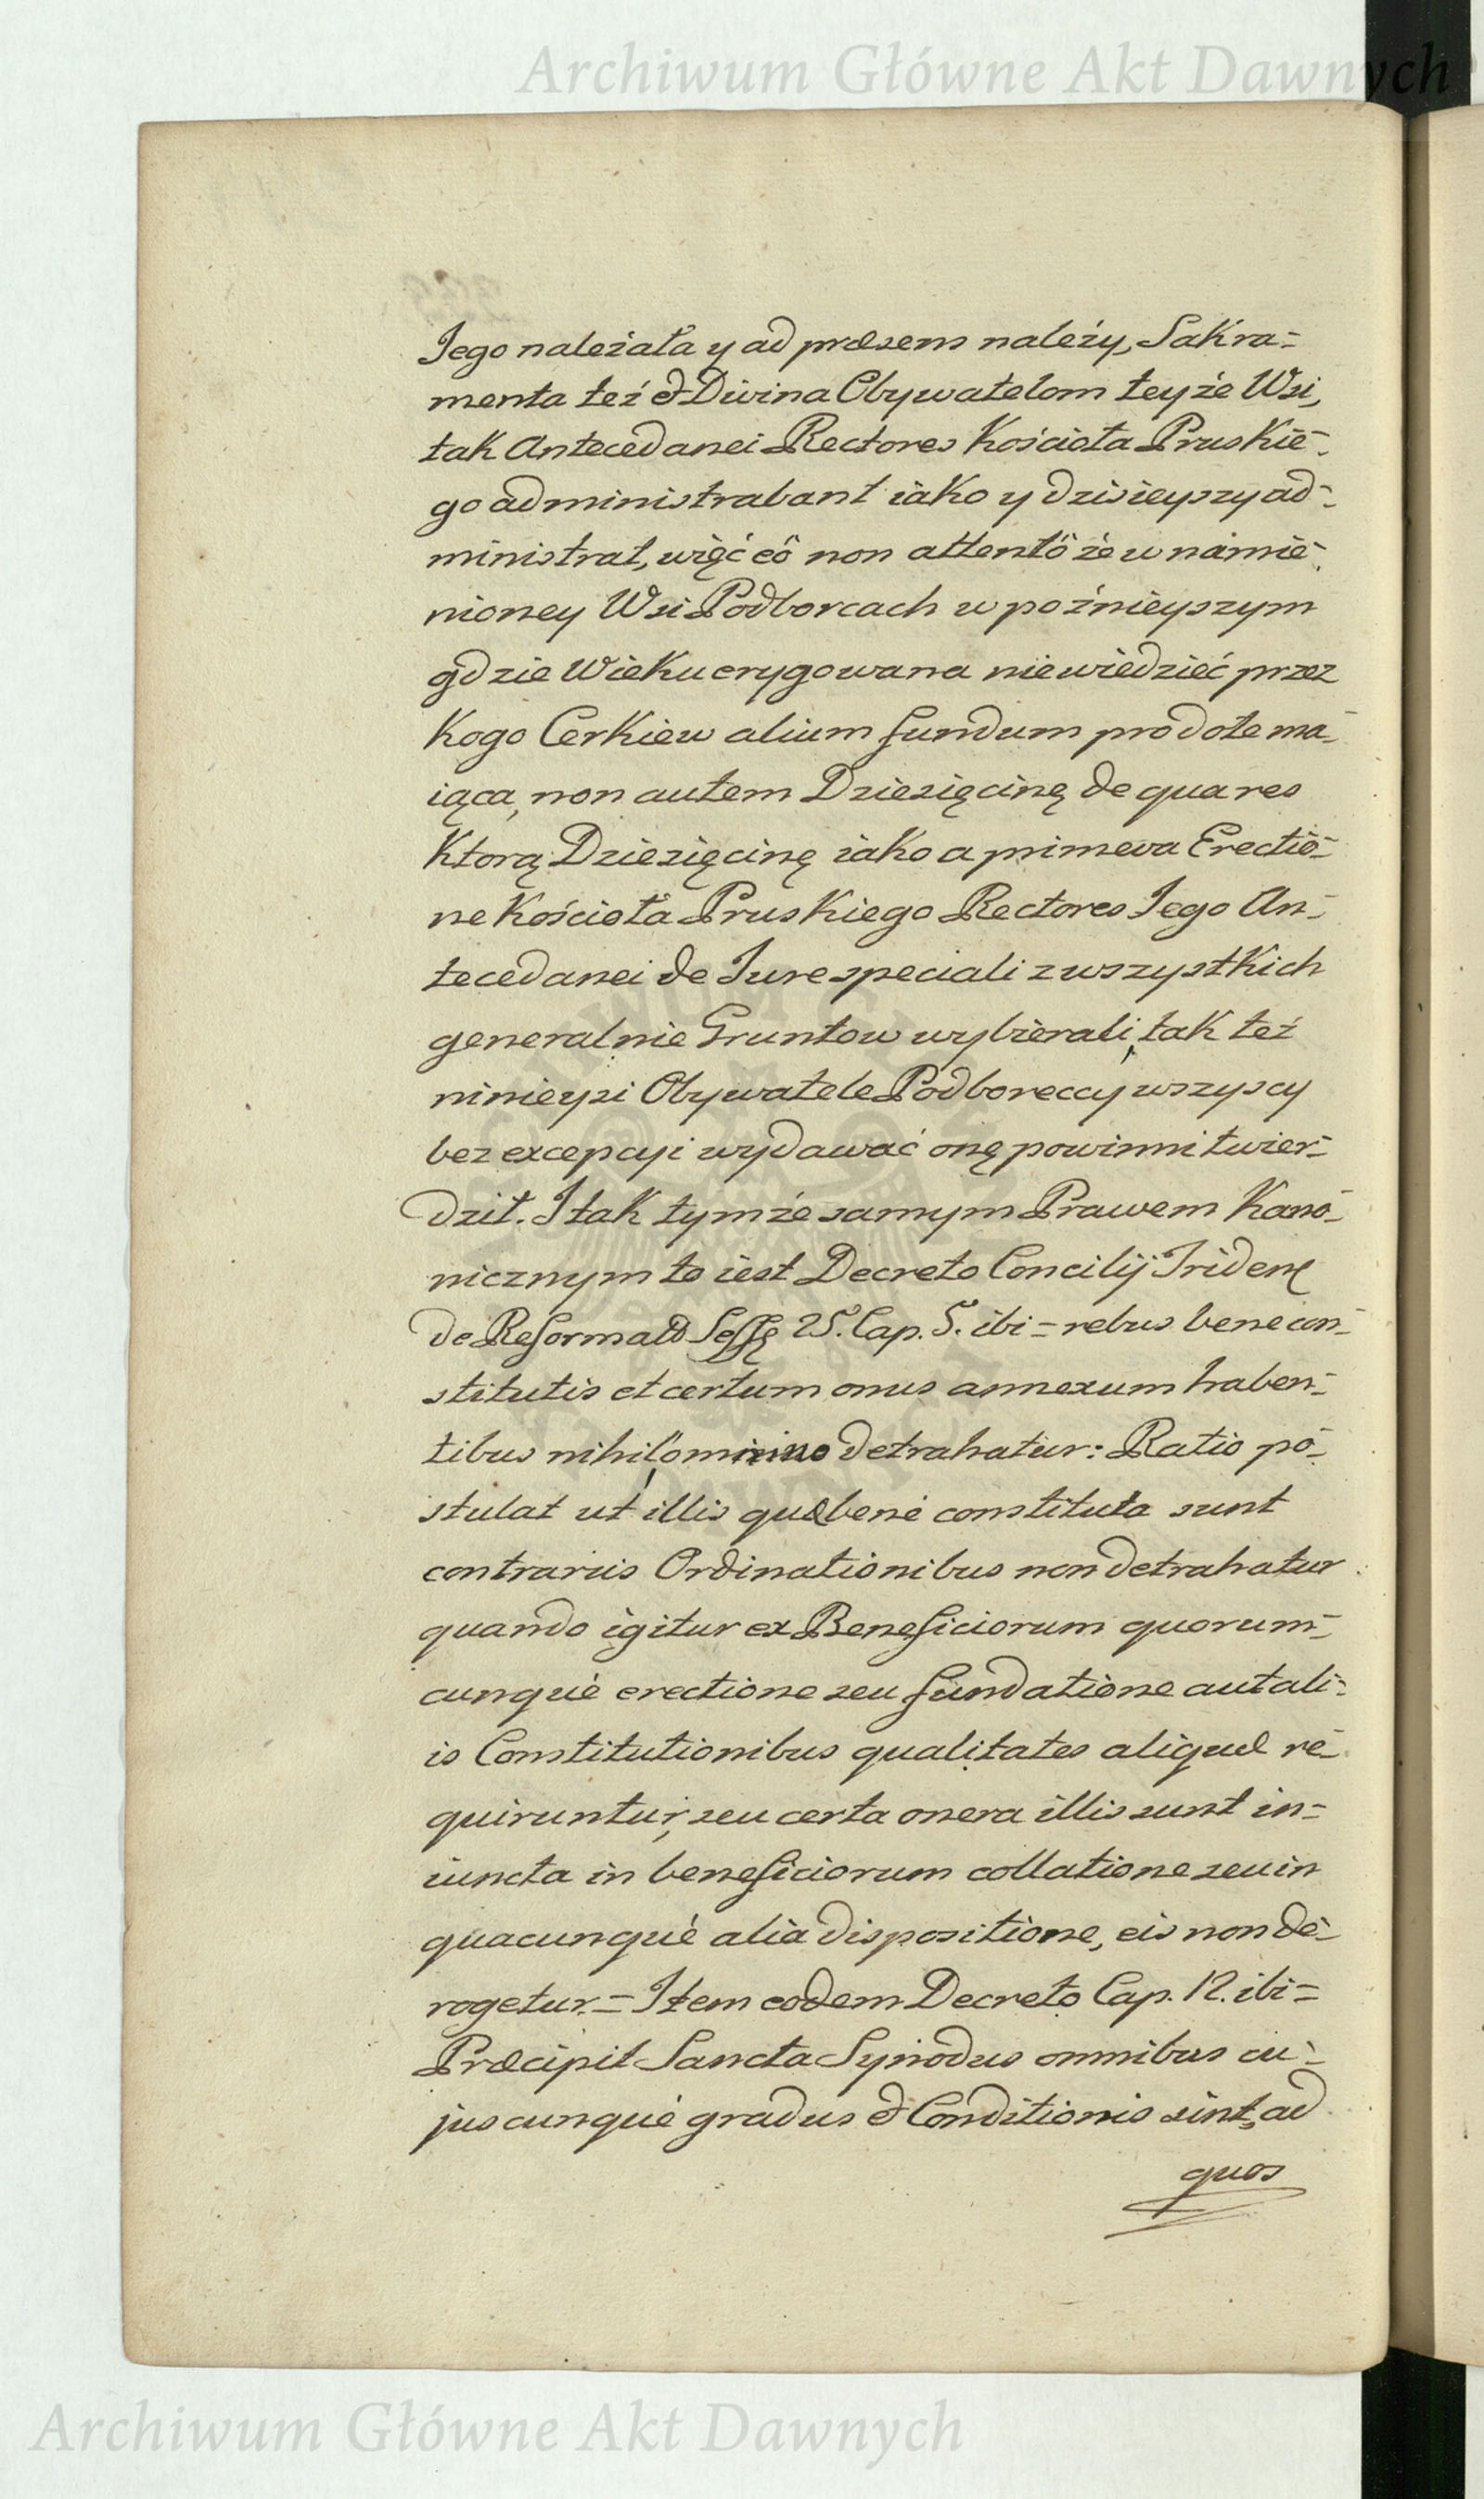 Archiwum Główne Akt Dawnych
Jego należała y ad præsens należy, Sakra=
menta też & Divina Obywatelom teyże Wsi,
tak Antecedanei Rectores Kościoła Pruskie=
go administrabant iako y dzisieyszy ad=
ministrat, więć eô non attentô że w namie=
nioney Wsi Podborcach w poźnieyszym
gdzie Wieku erygowana niewiedzieć przez
Kogo Cerkiew alium fundum pro dote ma=
iąca, non autem Dziesięcinę de qua res
Ktorą Dziesięcinę iako a primeva Erectio=
ne Kościoła Pruskiego Rectores Jego An=
tecedanei de Jure speciali z wszystkich
generalnie Gruntow wybierali, tak też
ninieysi Obywatele Podboreccy wszyscy
bez excepcyi wydawać onę powinni twier=
dził. I tak tymże samym Prawem Kano=
nicznym to iest Decreto Concilij Trident
de Reformatõ Sessę 25. Cap. 5. ibi = rebus bene con=
stitutis et certum onus annexum haben=
tibus nihil ominino detrahatur: Ratio po=
stulat ut illis quæ bene constituta sunt
contrariis Ordinationibus non detrahatur
quando igitur ex Beneficiorum quorum=
cunque erectione seu fundatione aut ali=
is Constitutionibus qualitates aliquæ re=
quiruntur, seu certa onera illis sunt in=
iuncta in beneficiorum collatione seu in
quacunque alia dispositione, eis non de=
rogetur. = Item eodem Decreto Cap. 12. ibi =
Præcipit Sancta Synodus omnibus cu=
juscunque gradus & Conditionis sint, ad
quos
Archiwum Główne Akt Dawnych